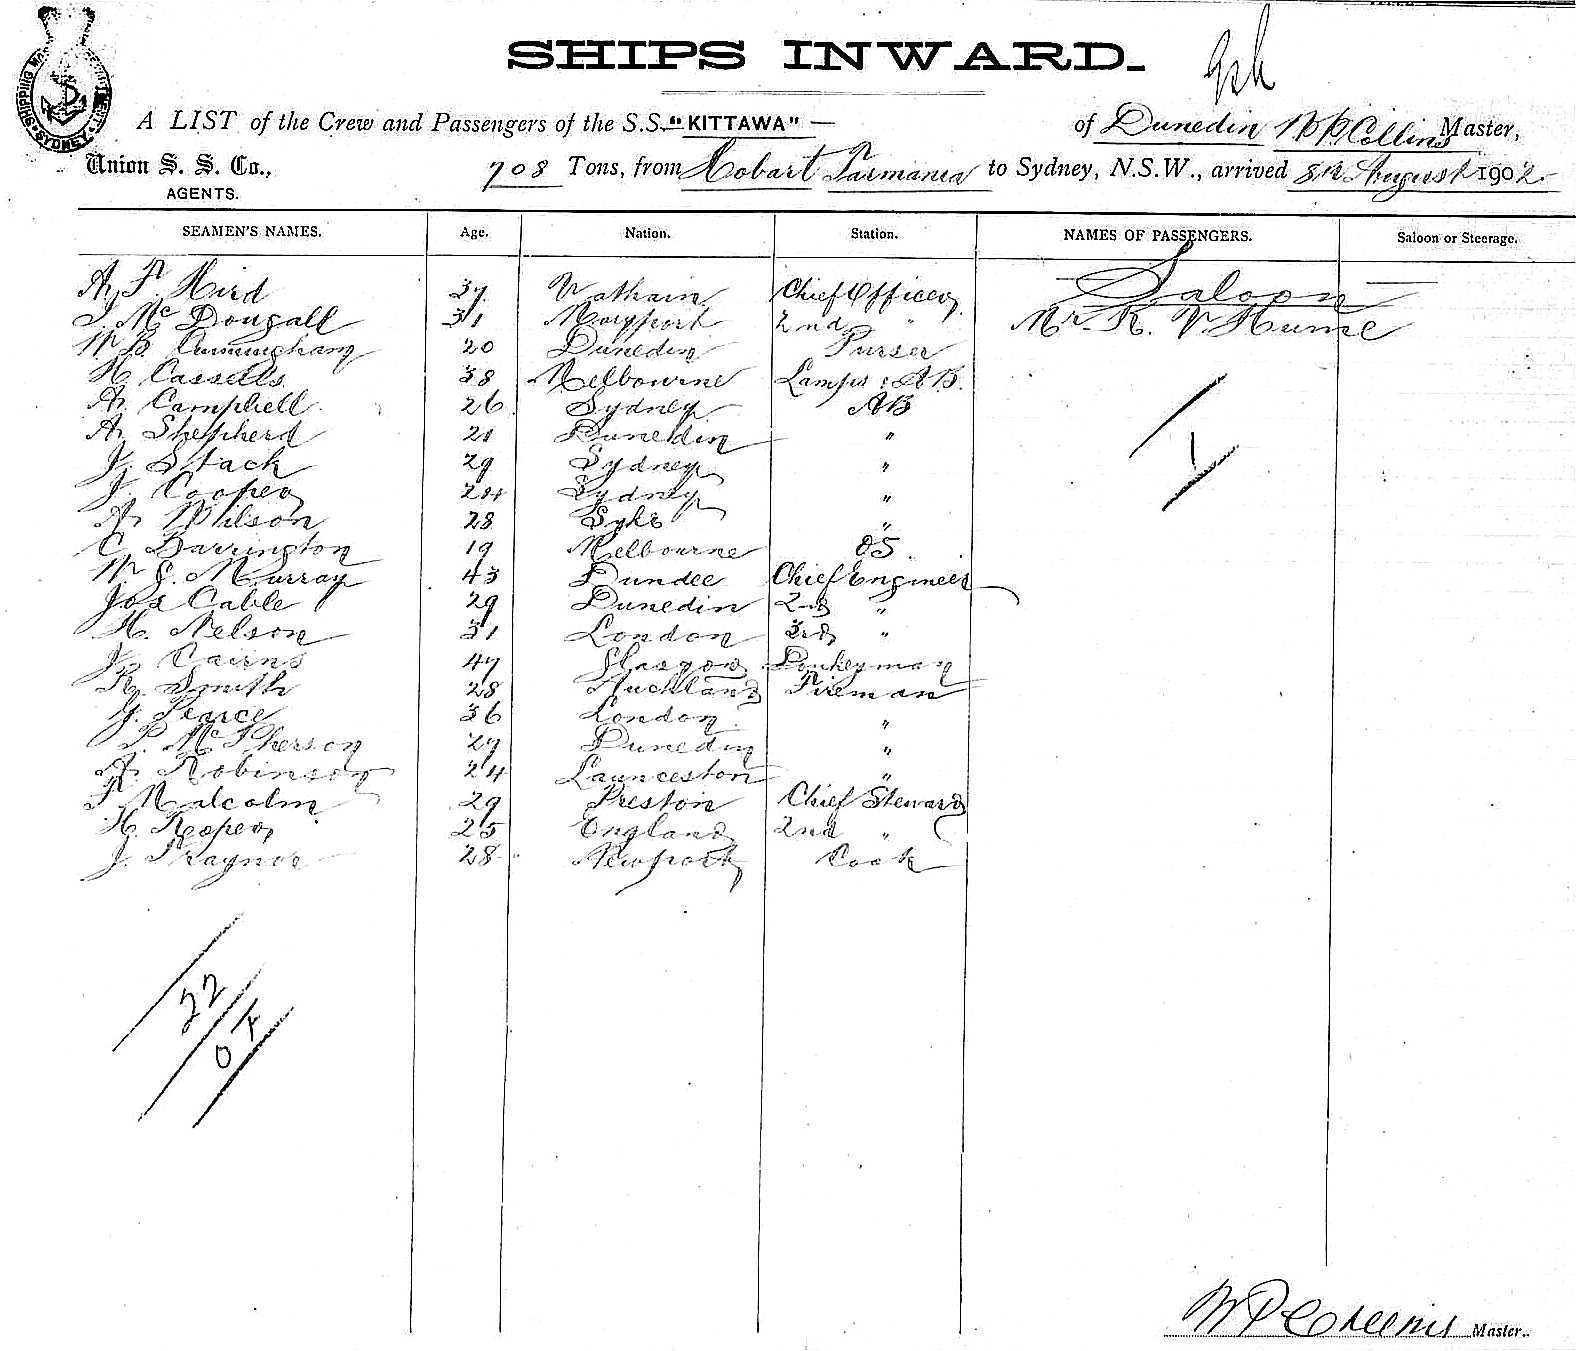 SHIPS INWARD.
SHIPPING
SYDNEY
A LIST of the Crew and Passengers of the S.S. "KITTAWA" — of Dunedin W P Collins Master,
Union S. S. Co., 708 Tons, from Hobart Tasmania to Sydney, N.S.W., arrived 8th August 1902.
AGENTS.
SEAMEN'S NAMES. Age. Nation. Station. NAMES OF PASSENGERS. Saloon or Steerage.
A. F. Hird 37 Chief Officer Saloon
J McDougall 31 Maryport 2nd " Mr. R. V Hume
W B. Cunningham 20 Dunedin Purser
H Cassells 38 Melbourne Lamps : AB.
A. Campbell 26 Sydney AB
A. Shepherd 21 Dunedin "
J. Stack 29 Sydney "
J. Cooper 24 Sydney "
A. Wilson 28 "
C. Barrington 19 Melbourne OS.
W G. Murray 43 Dundee Chief Engineer
Jas Cable 29 Dunedin 2nd "
H. Nelson 31 London 3rd "
J. Cairns 47 Glasgow Donkeyman
R. Smith 28 Auckland Fireman
G. Pearce 36 London "
P. McPherson 27 Dunedin "
A. Robinson 24 Launceston "
F Malcolm 29 Preston Chief Steward
H. Roper 25 England 2nd "
J. Traynor 28 Newport Cook
1
22
W P Collins Master.